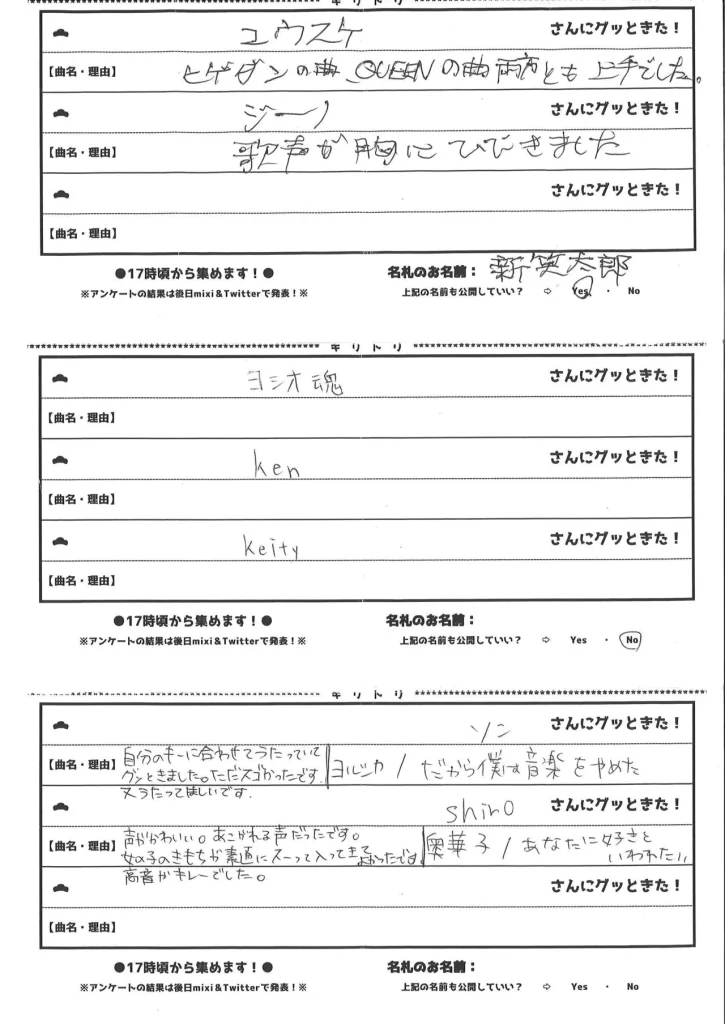 キリトリ
ユウスケ さんにグッときた！
【曲名・理由】 ヒゲダンの曲、QUEENの曲両方とも上手でした。
ジーノ さんにグッときた！
【曲名・理由】 歌声が胸にひびきました
さんにグッときた！
【曲名・理由】
●17時頃から集めます！● 名札のお名前： 新笑太郎
※アンケートの結果は後日mixi＆Twitterで発表！※ 上記の名前も公開していい？ ⇨ Yes ・ No
キリトリ
ヨシオ魂 さんにグッときた！
【曲名・理由】
ken さんにグッときた！
【曲名・理由】
keity さんにグッときた！
【曲名・理由】
●17時頃から集めます！● 名札のお名前：
※アンケートの結果は後日mixi＆Twitterで発表！※ 上記の名前も公開していい？ ⇨ Yes ・ No
キリトリ
ソン さんにグッときた！
【曲名・理由】 自分のキーに合わせてうたっていて
グッときました。ただスゴかったです
又うたってほしいです.
ヨルシカ / だから僕は音楽をやめた
shiro さんにグッときた！
【曲名・理由】 声がかわいい。あこがれる声だったです。
女の子のきもちが素直にスーって入って来てよかったです
高音がキレーでした。
奥華子 / あなたに好きと
いわれたい
さんにグッときた！
【曲名・理由】
●17時頃から集めます！● 名札のお名前：
※アンケートの結果は後日mixi＆Twitterで発表！※ 上記の名前も公開していい？ ⇨ Yes ・ No